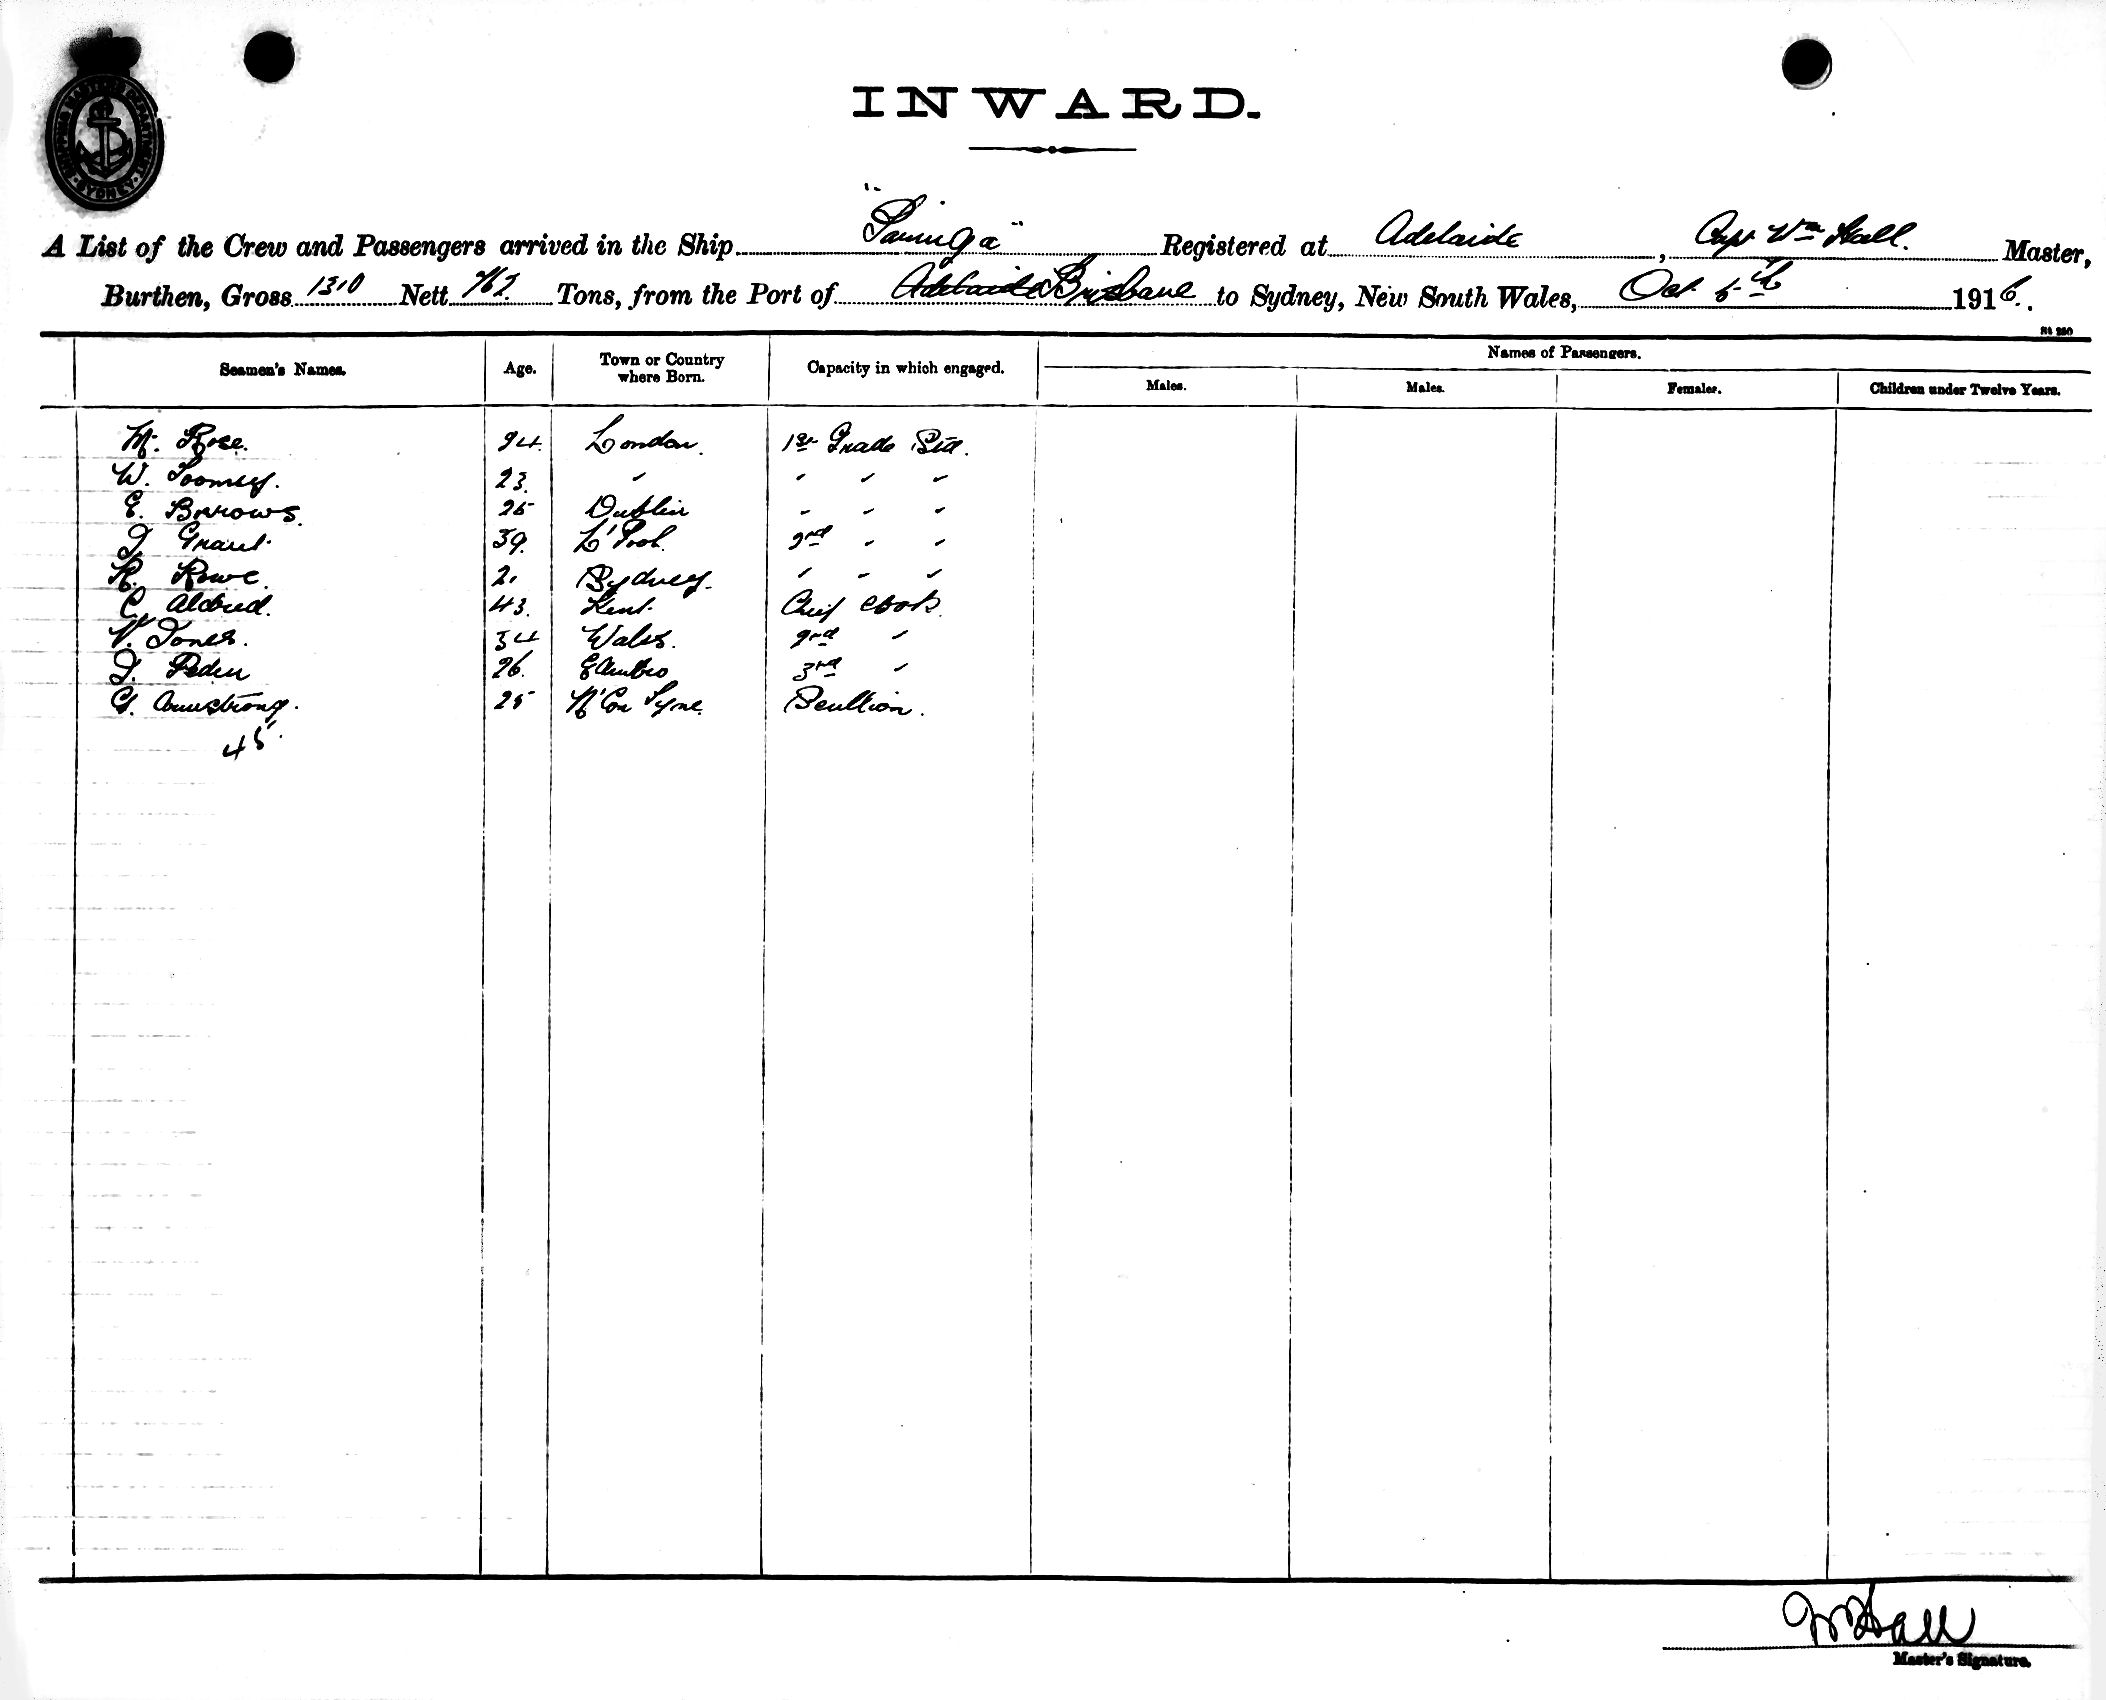 SHIPPING MASTERS DEPARTMENT SYDNEY
INWARD.
A List of the Crew and Passengers arrived in the Ship "Paringa" Registered at Adelaide, Capt Wm Hall. Master,
Burthen, Gross 1310 Nett 762 Tons, from the Port of Adelaide Brisbane to Sydney, New South Wales, Oct 5th 1916.
Seamen's Names. Age. Town or Country where Born. Capacity in which engaged. Names of Passengers.
Males. Males. Females. Children under Twelve Years.
M. Rose. 24. London. 1st Grade Std.
W. Toomey. 23. " " " "
E. Borrows. 25 Dublin " " "
J Grant. 39. L'Pool. 2nd " "
R. Rowe. 21 Sydney. " " "
C. Aldred. 43. Kent. Chief Cook.
V. Jones. 34 Wales. 2nd "
J. Peden 26. Edinbro 3rd "
G. Armstrong. 25 N'C on Tyne. Scullion.
45.
W Hall
Master's Signature.